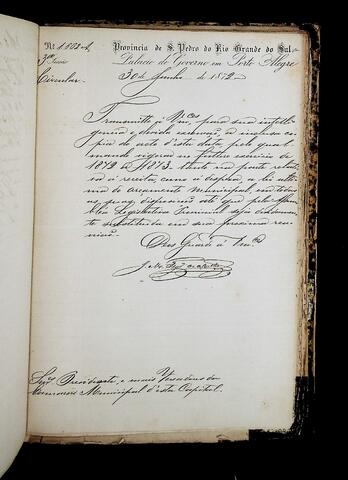 Nº 1.802-A
Provincia de S. Pedro do Rio Grande do Sul.
3ª Secção
Palacio do Governo em Porto Alegre
30 de Junho de 1872
Circular
Transmitto á Vm.ces para sua intelli-
gencia e devida execução, a inclusa co-
pia do acto d'esta data, pelo qual
mando vigorar no futuro exercicio de
1872 a 1873, tanto na parte relati-
va á receita, como á despeza, a lei ul-
tima do orçamento Municipal, em todas
as suas disposições até que pela Assem-
bléa Legislativa Provincial seja devidamen-
te substituida em sua proxima reu-
nião.
Deus Guarde a Vm.ces
Snrs. Presidente, e mais Vereadores da
Camara Municipal d'esta Capital.